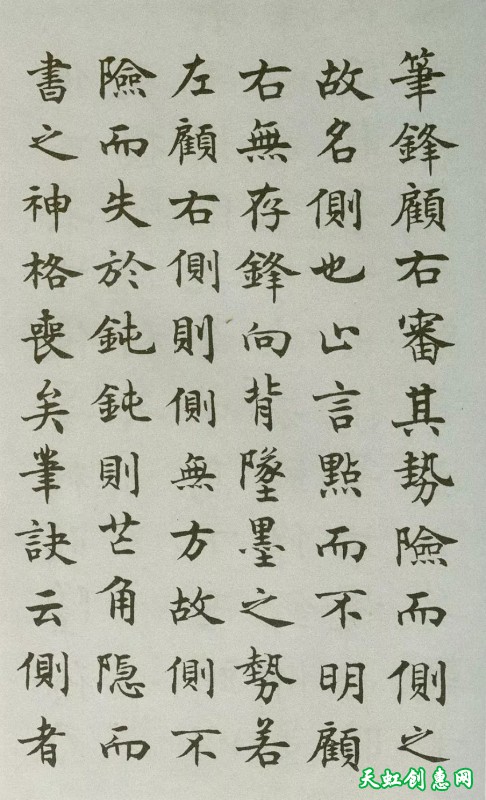 筆鋒顧右審其勢險而側之
故名側也止言點而不明顧
右無存鋒向背墜墨之勢若
左顧右側則側無方故側不
險而失於鈍鈍則芒角隐而
書之神格喪矣筆訣云側者
天虹创惠网